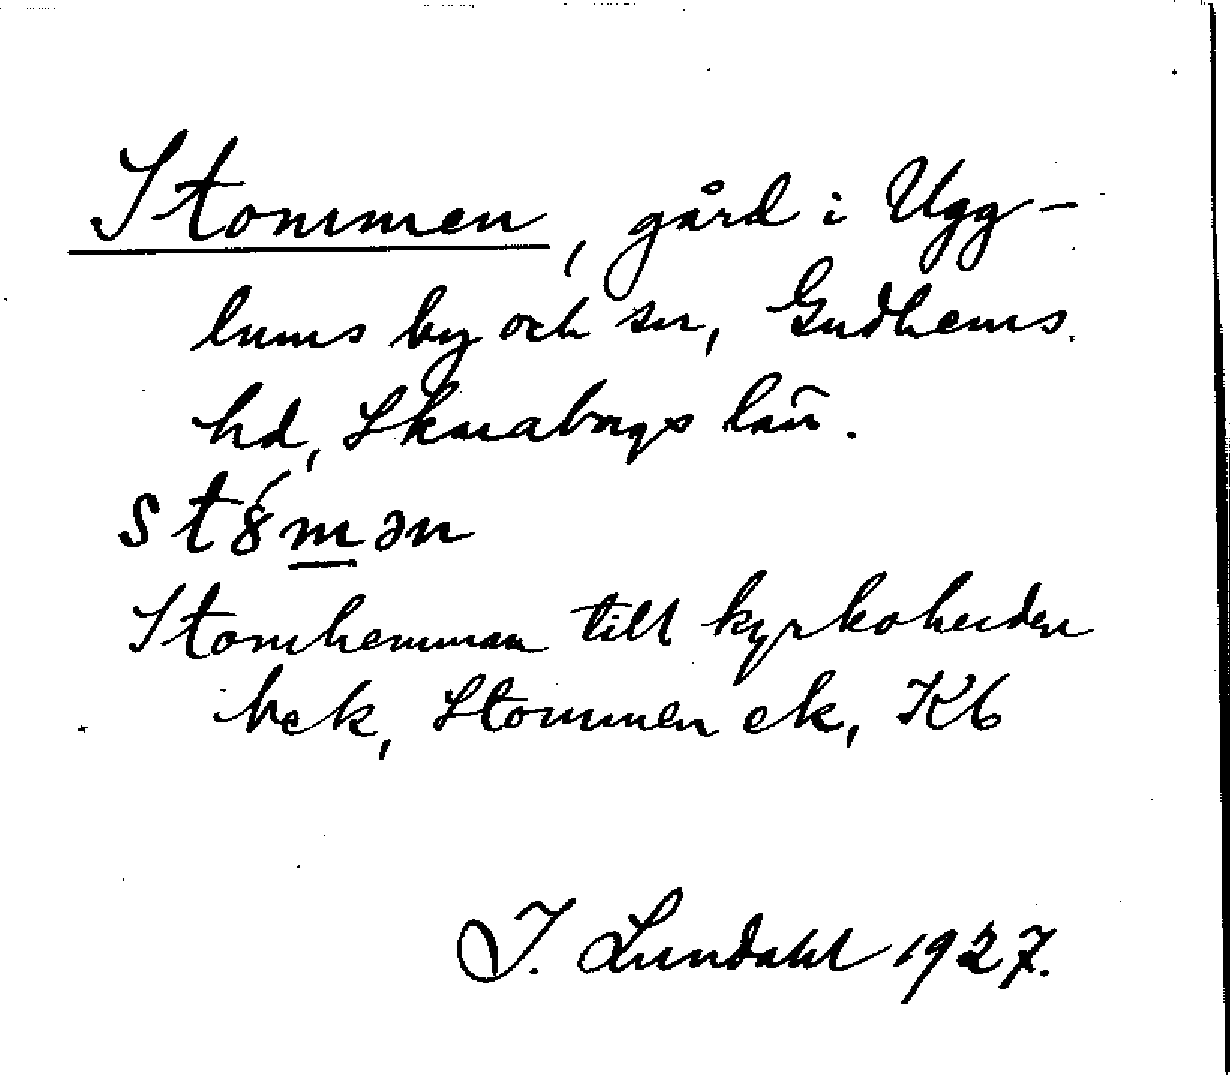 Stommen, gård i Ugg-
lums by och sn, Gudhems
hd, Skaraborgs län.
st8́mən
Stomhemman till kyrkoherden
bek, Stommen ek, Kb
I. Lundahl 1927.